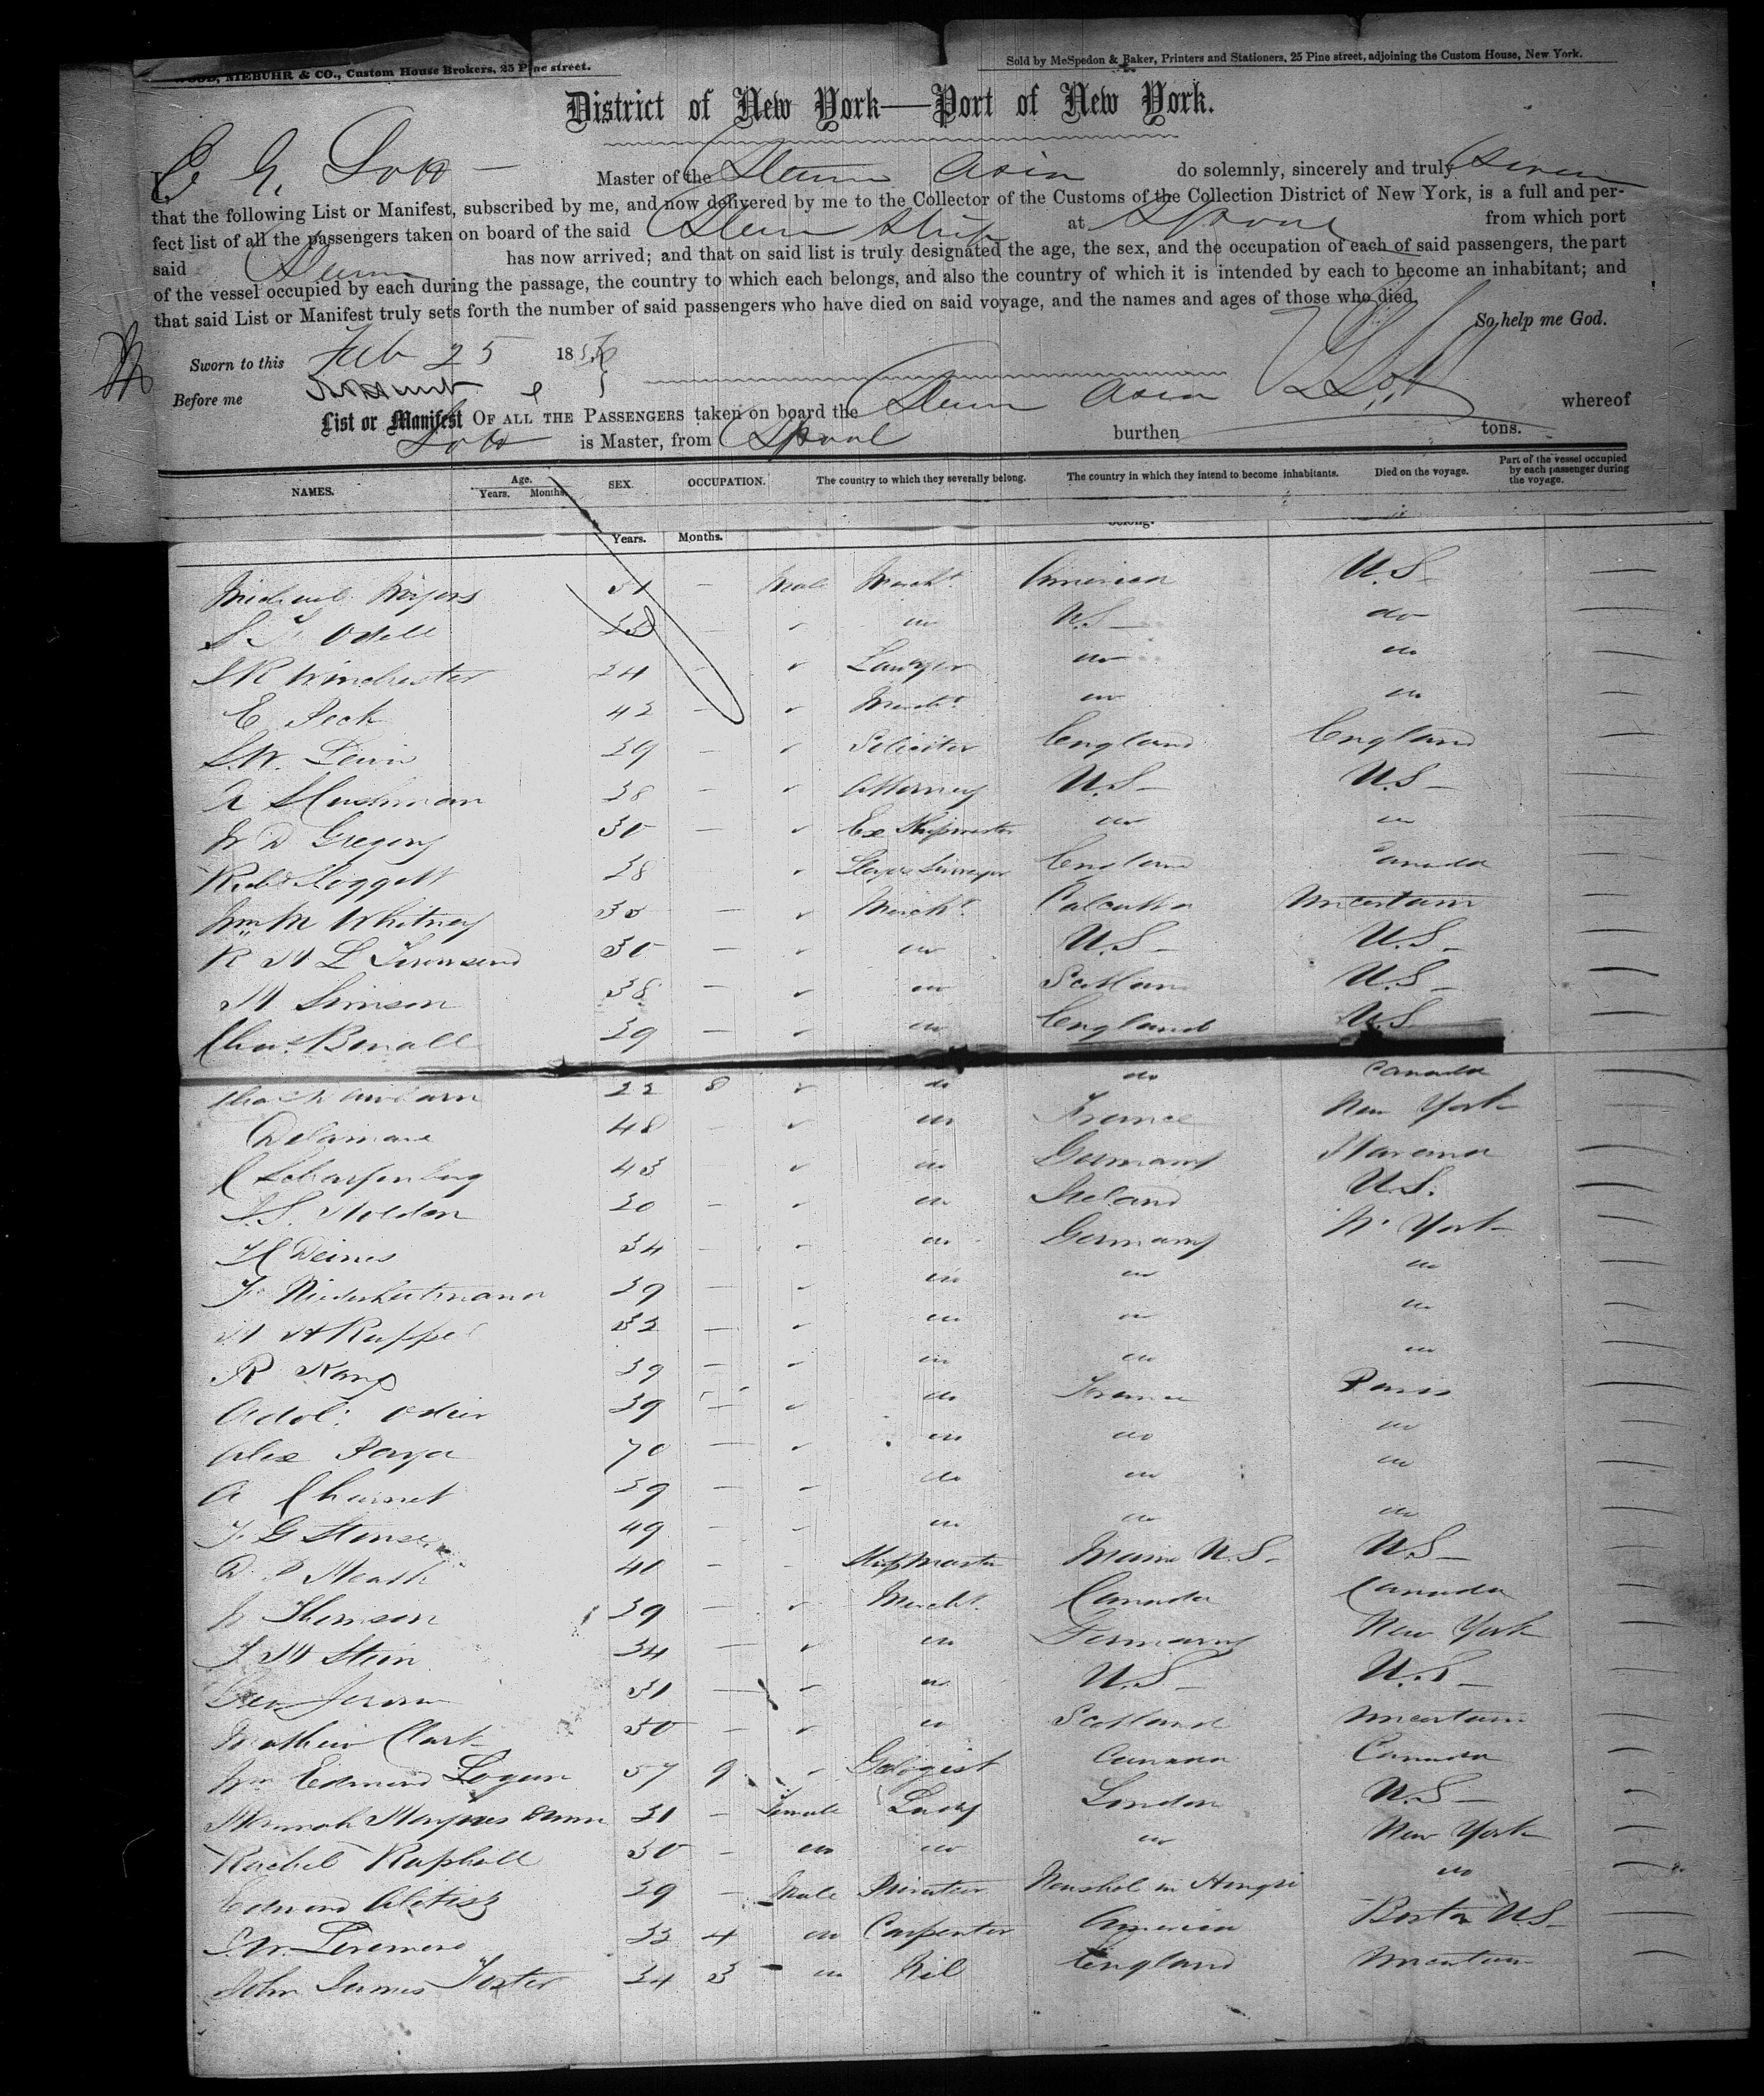 WOOD, NIEBUHR & CO., Custom House Brokers, 25 Pine street.
Sold by McSpedon & Baker, Printers and Stationers, 25 Pine street, adjoining the Custom House, New York.
District of New York—Port of New York.
I, E G. Lott Master of the Steam Asia do solemnly, sincerely and truly swear
that the following List or Manifest, subscribed by me, and now delivered by me to the Collector of the Customs of the Collection District of New York, is a full and per-
fect list of all the passengers taken on board of the said Steam Ship at Lpool from which port
said Steam has now arrived; and that on said list is truly designated the age, the sex, and the occupation of each of said passengers, the part
of the vessel occupied by each during the passage, the country to which each belongs, and also the country of which it is intended by each to become an inhabitant; and
that said List or Manifest truly sets forth the number of said passengers who have died on said voyage, and the names and ages of those who died.
So help me God.
Sworn to this Feb 25 185
Before me
List or Manifest OF ALL THE PASSENGERS taken on board the Steam Asia whereof
Lott is Master, from Lpool burthen tons.
NAMES. Age. Years. Months. SEX. OCCUPATION. The country to which they severally belong. The country in which they intend to become inhabitants. Died on the voyage. Part of the vessel occupied by each passenger during the voyage.
Years. Months. belong.
Michael Mayers 51 — Male Mercht America U.S —
S. F. Odell — do U.S — do
J R Winchester 24 — Lawyer do do
E Peck 42 — Mercht do do
S.W. 39 — Solicitor England England
A S Cushman 38 — Attorney U.S — U.S —
W D Gregory 30 — Ex Shipmaster do do
Richd 28 Surveyor England Canada
Wm M Whitney 30 — Mercht Calcutta Uncertain
R H L Townsend 30 — do U.S — U.S —
H Simson 38 — do Scotland U.S —
Chas. 39 — do England U.S
22 8 do do Canada
Delamare 48 — do France New York
C Scharfenberg 43 — do Germany Havanna
J.S. Holden 20 — do Ireland U.S.
H Deines 34 — do Germany N. York
F. 39 — do do do
H A Ruppel 32 — do do do
R Kang 39 — do do do
Adol. Odier 39 — do France Paris
Alex 70 — do do do
A Charnet 39 — do do do
F G 49 — do do do
D P Heath 40 — Ship Master Maine U.S. U.S —
W Thomson 39 — Mercht. Canada Canada
J H Stein 34 — do Germany New York
Geo Jerome 31 — do U.S — U.S —
Mathew Clark 50 — do Scotland Uncertain
Wm Edmond Logan 57 9 Geologist Canada Canada
Hannah 31 — Female Lady London U.S —
Rachel Raphall 30 — do do do New York
Edmund 39 — Male in do
S.W. 33 4 do Carpenter America Boston U.S —
John James Foster 34 3 do Nil England Uncertain